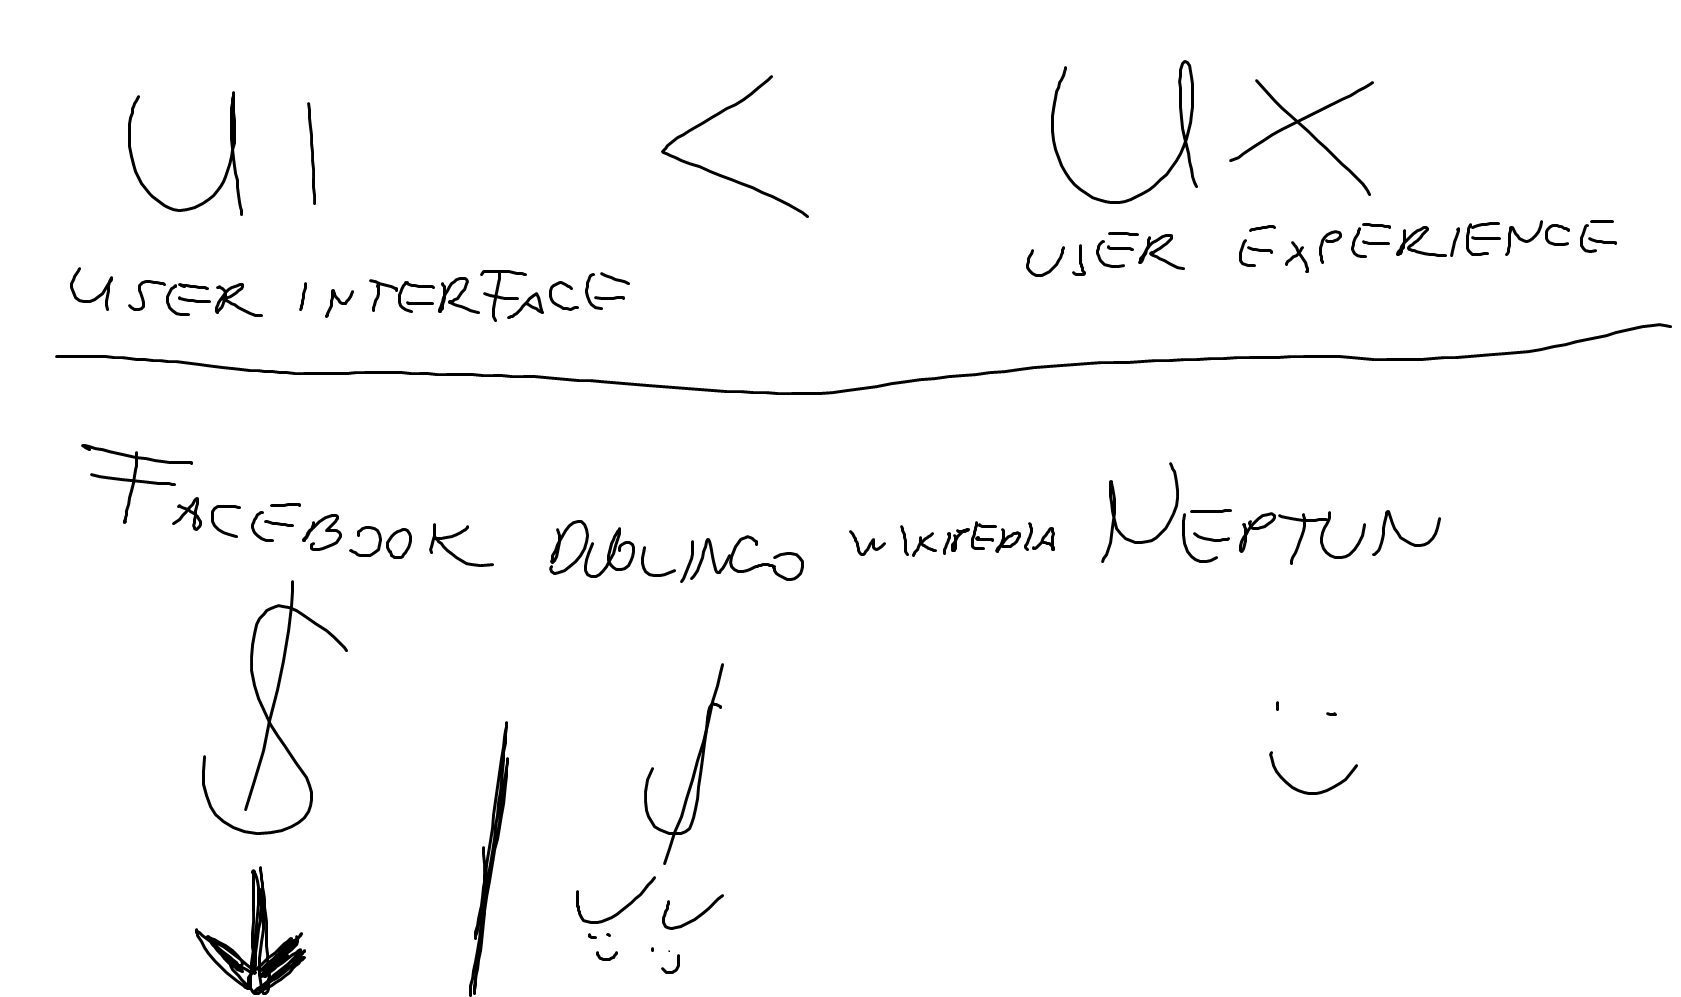 UI < UX
USER INTERFACE USER EXPERIENCE
FACEBOOK DUOLINGO WIKIPEDIA NEPTUN
$ $